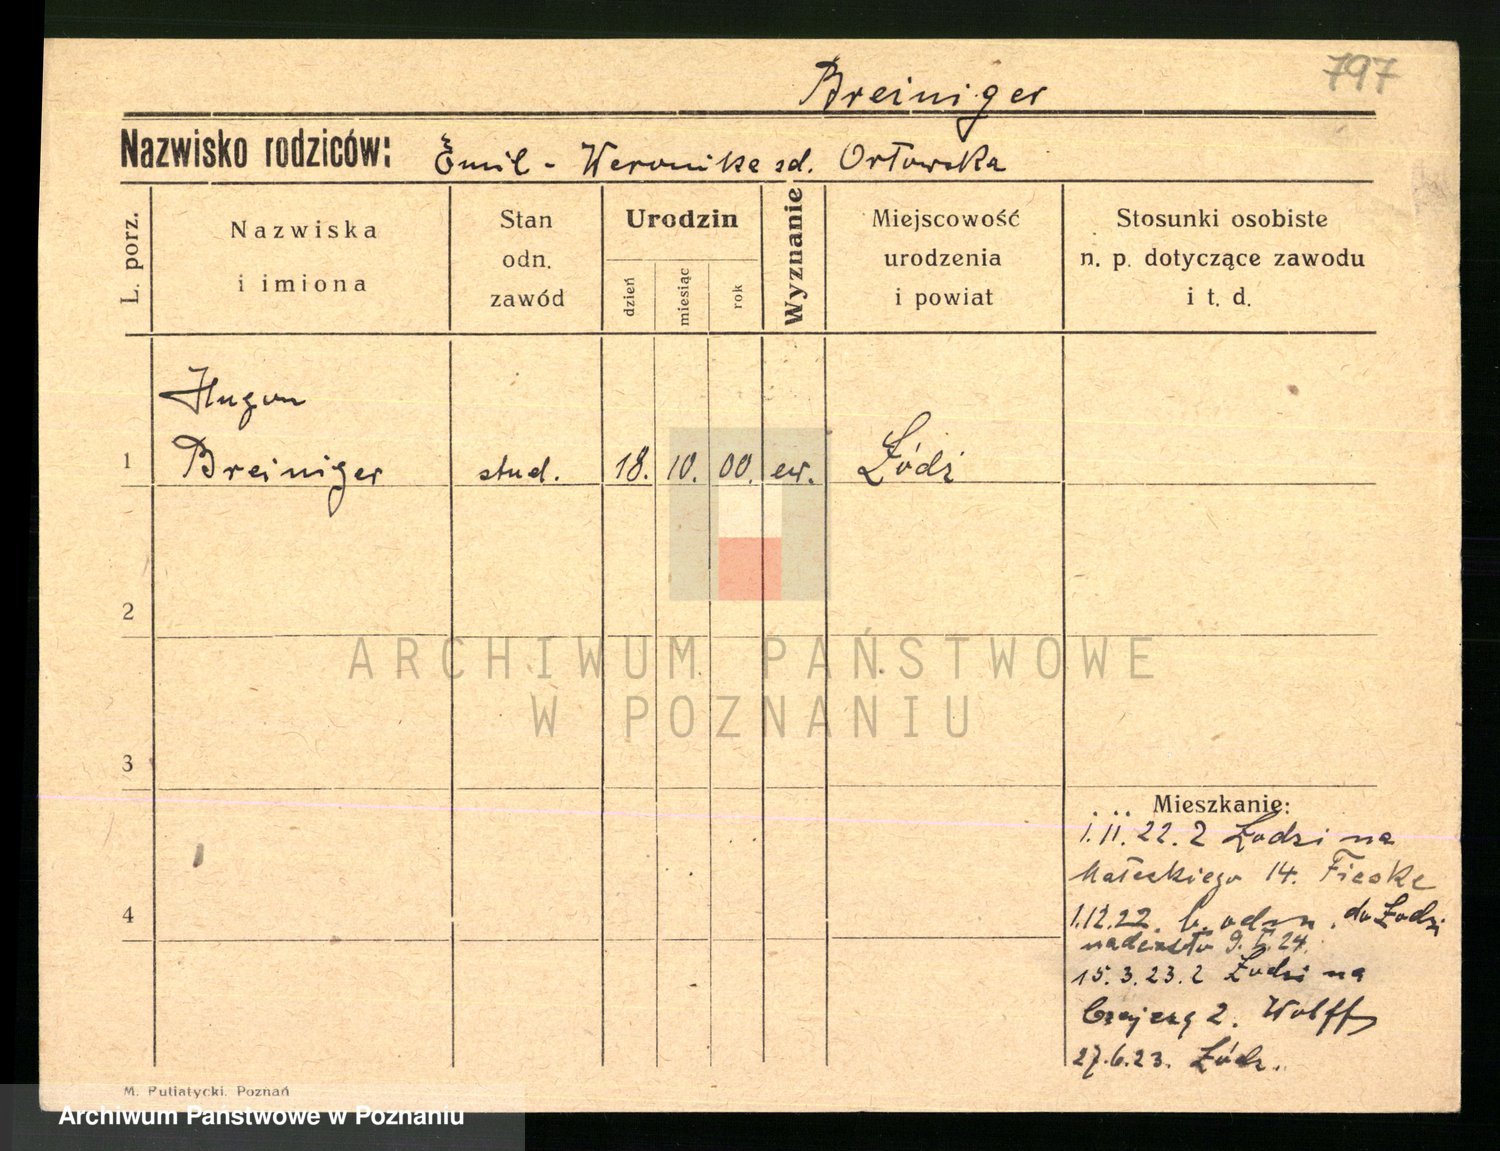 797
Breiniger
Nazwisko rodziców: Emil - Weronika zd. Orłowska
L. porz.
Nazwiska
i imiona
Stan
odn.
zawód
Urodzin
dzień
miesiąc
rok
Wyznanie
Miejscowość
urodzenia
i powiat
Stosunki osobiste
n. p. dotyczące zawodu
i t. d.
Hugon
1 Breiniger stud. 18. 10. 00. ew. Łódź
2
ARCHIWUM PAŃSTWOWE
W POZNANIU
3
Mieszkanie:
1. 11. 22. z Łodzi na
Małeckiego 14. Fieske
4
1.12.22. b. odm. do Łodzi
nadeszło 9. 24.
15. 3. 23. z Łodzi na
2. Wolff
27.6.23. Łódź.
M. Putiatycki, Poznań
Archiwum Państwowe w Poznaniu